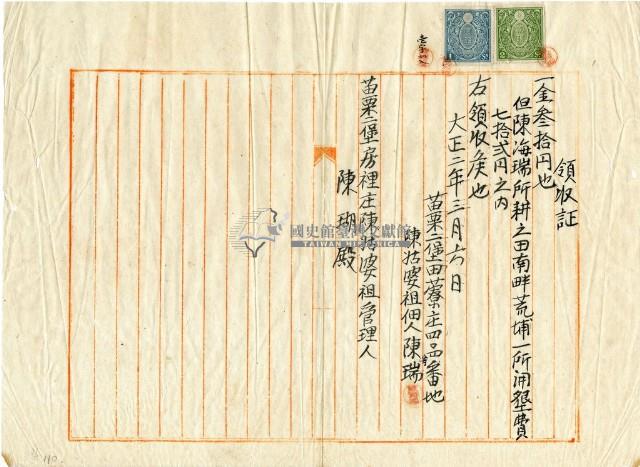 領收証
一金叁拾円也
但陳海瑞所耕之田南畔荒埔一所開墾費
七拾弐円之內
右領收候也
大正二年三月六日
苗栗二堡田藔庄四品番地
陳姑婆祖佃人陳瑞
苗栗二堡房裡庄陳姑婆祖管理人
陳瑚殿
國史館臺灣文獻館
TAIWAN HISTORICA